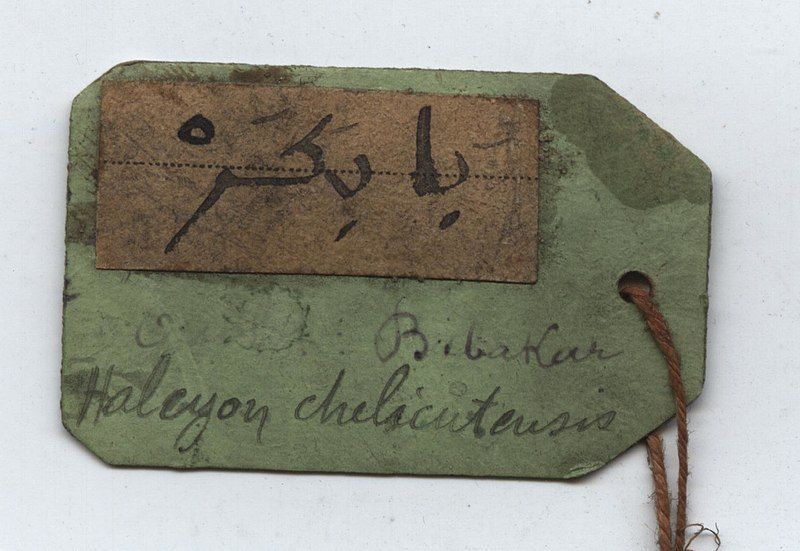 بابكره
Bibakar
Halcyon chelicutensis